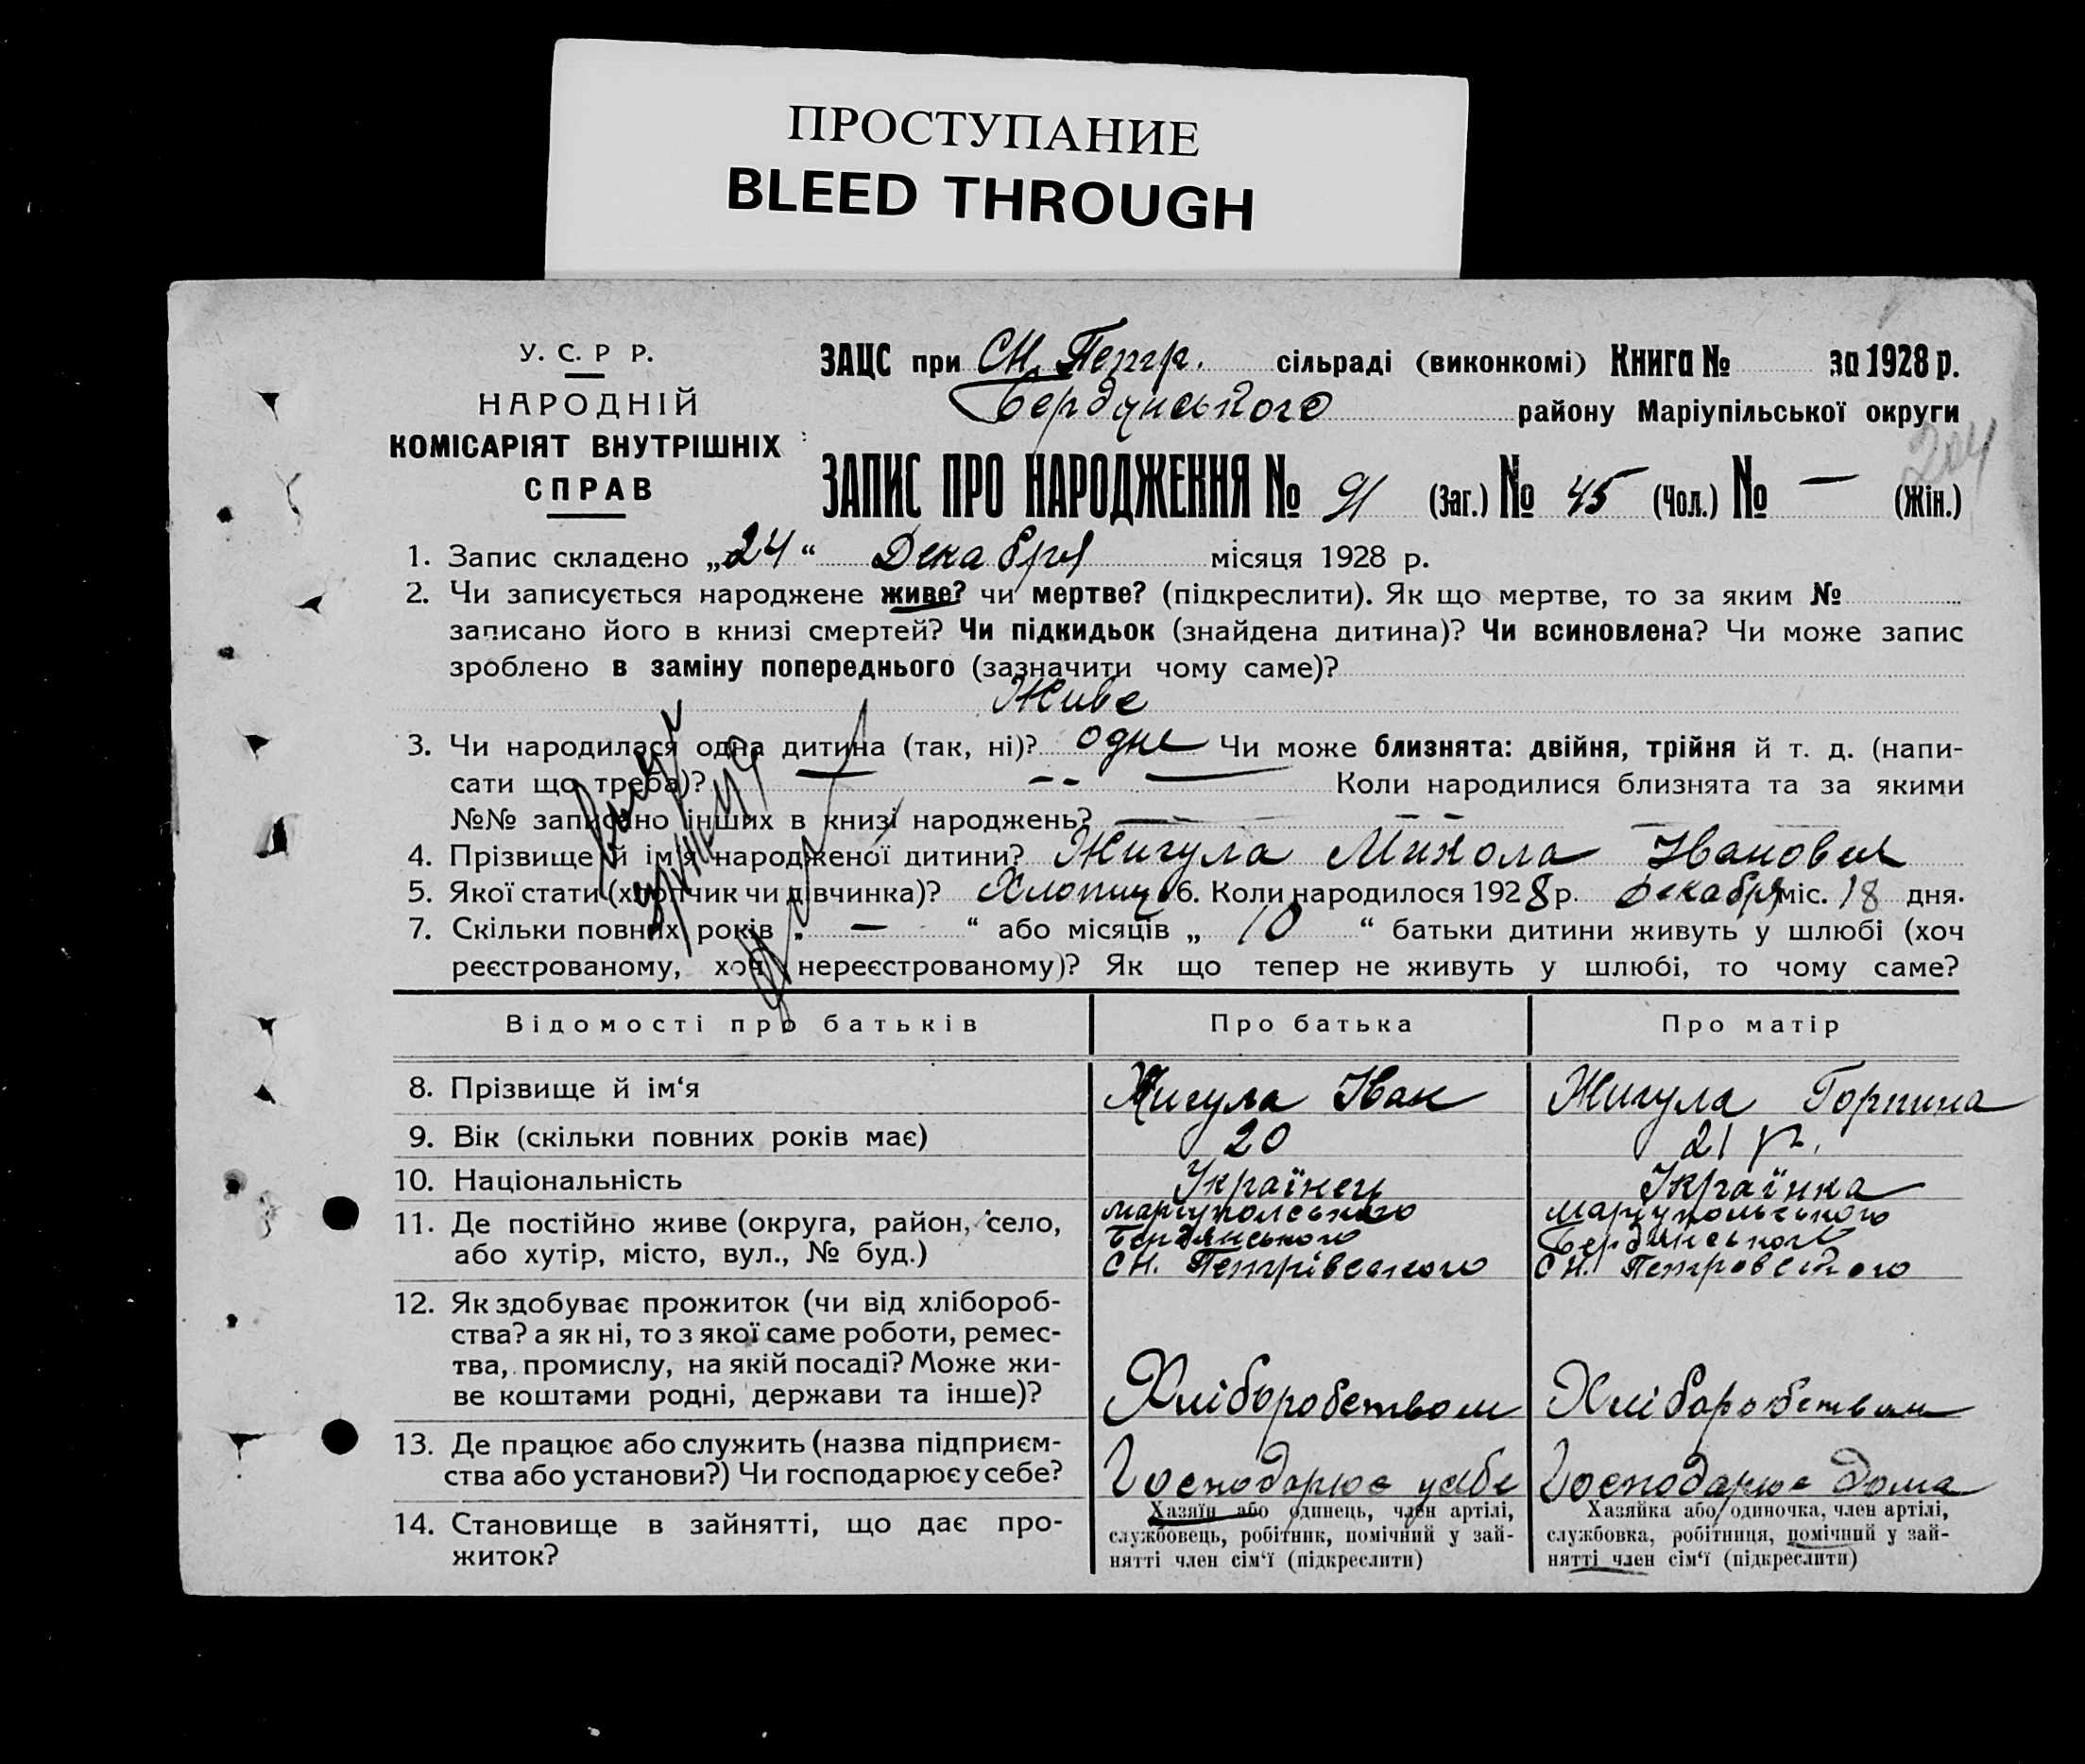 ПРОСТУПАНИЕ
BLEED THROUGH
У. С. Р Р.
НАРОДНІЙ
КОМІСАРІЯТ ВНУТРІШНІХ
СПРАВ
ЗАЦС при СН. Петр. сільраді (виконкомі) Книга № за 1928 р.
Бердянського району Маріупільської округи
204
ЗАПИС ПРО НАРОДЖЕННЯ № 91 (Заг.) № 45 (Чол.) № — (Жін.)
1. Запис складено „24“ Декабря місяця 1928 р.
2. Чи записується народжене живе? чи мертве? (підкреслити). Як що мертве, то за яким №
записано його в книзі смертей? Чи підкидьок (знайдена дитина)? Чи всиновлена? Чи може запис
зроблено в заміну попереднього (зазначити чому саме)?
Живе
3. Чи народилася одна дитина (так, ні)? одне Чи може близнята: двійня, трійня й т. д. (напи-
сати що треба)? — -- — Коли народилися близнята та за якими
№№ записано інших в книзі народжень? — - - —
4. Прізвище й ім'я народженої дитини? Жигула Микола Іванович
5. Якої стати (хлопчик чи дівчинка)? Хлопиц 6. Коли народилося 1928 р. декабря міс. 18 дня.
7. Скільки повних років „ — “ або місяців „ 10 “ батьки дитини живуть у шлюбі (хоч
реєстрованому, хоч нереєстрованому)? Як що тепер не живуть у шлюбі, то чому саме?
Відомості про батьків Про батька Про матір
8. Прізвище й ім‘я Жигула Іван Жигула Горпина
9. Вік (скільки повних років має) 20 21 р.
10. Національність Українець Українка
11. Де постійно живе (округа, район, село,
або хутір, місто, вул., № буд.)
Маріуполського
Бердянського
СН. Петрівського
Маріупольського
Бердянського
СН. Петровского
12. Як здобуває прожиток (чи від хлібороб-
ства? а як ні, то з якої саме роботи, ремес-
тва, промислу, на якій посаді? Може жи-
ве коштами родні, держави та інше)?
Хліборобством Хліборобством
13. Де працює або служить (назва підприєм-
ства або установи?) Чи господарює у себе?
Господарює у себе Господарює дома
14. Становище в зайнятті, що дає про-
житок?
Хазяїн або одинець, член артілі,
службовець, робітник, помічний у зай-
нятті член сім‘ї (підкреслити)
Хазяйка або одиночка, член артілі,
службовка, робітниця, помічний у зай-
нятті член сім‘ї (підкреслити)